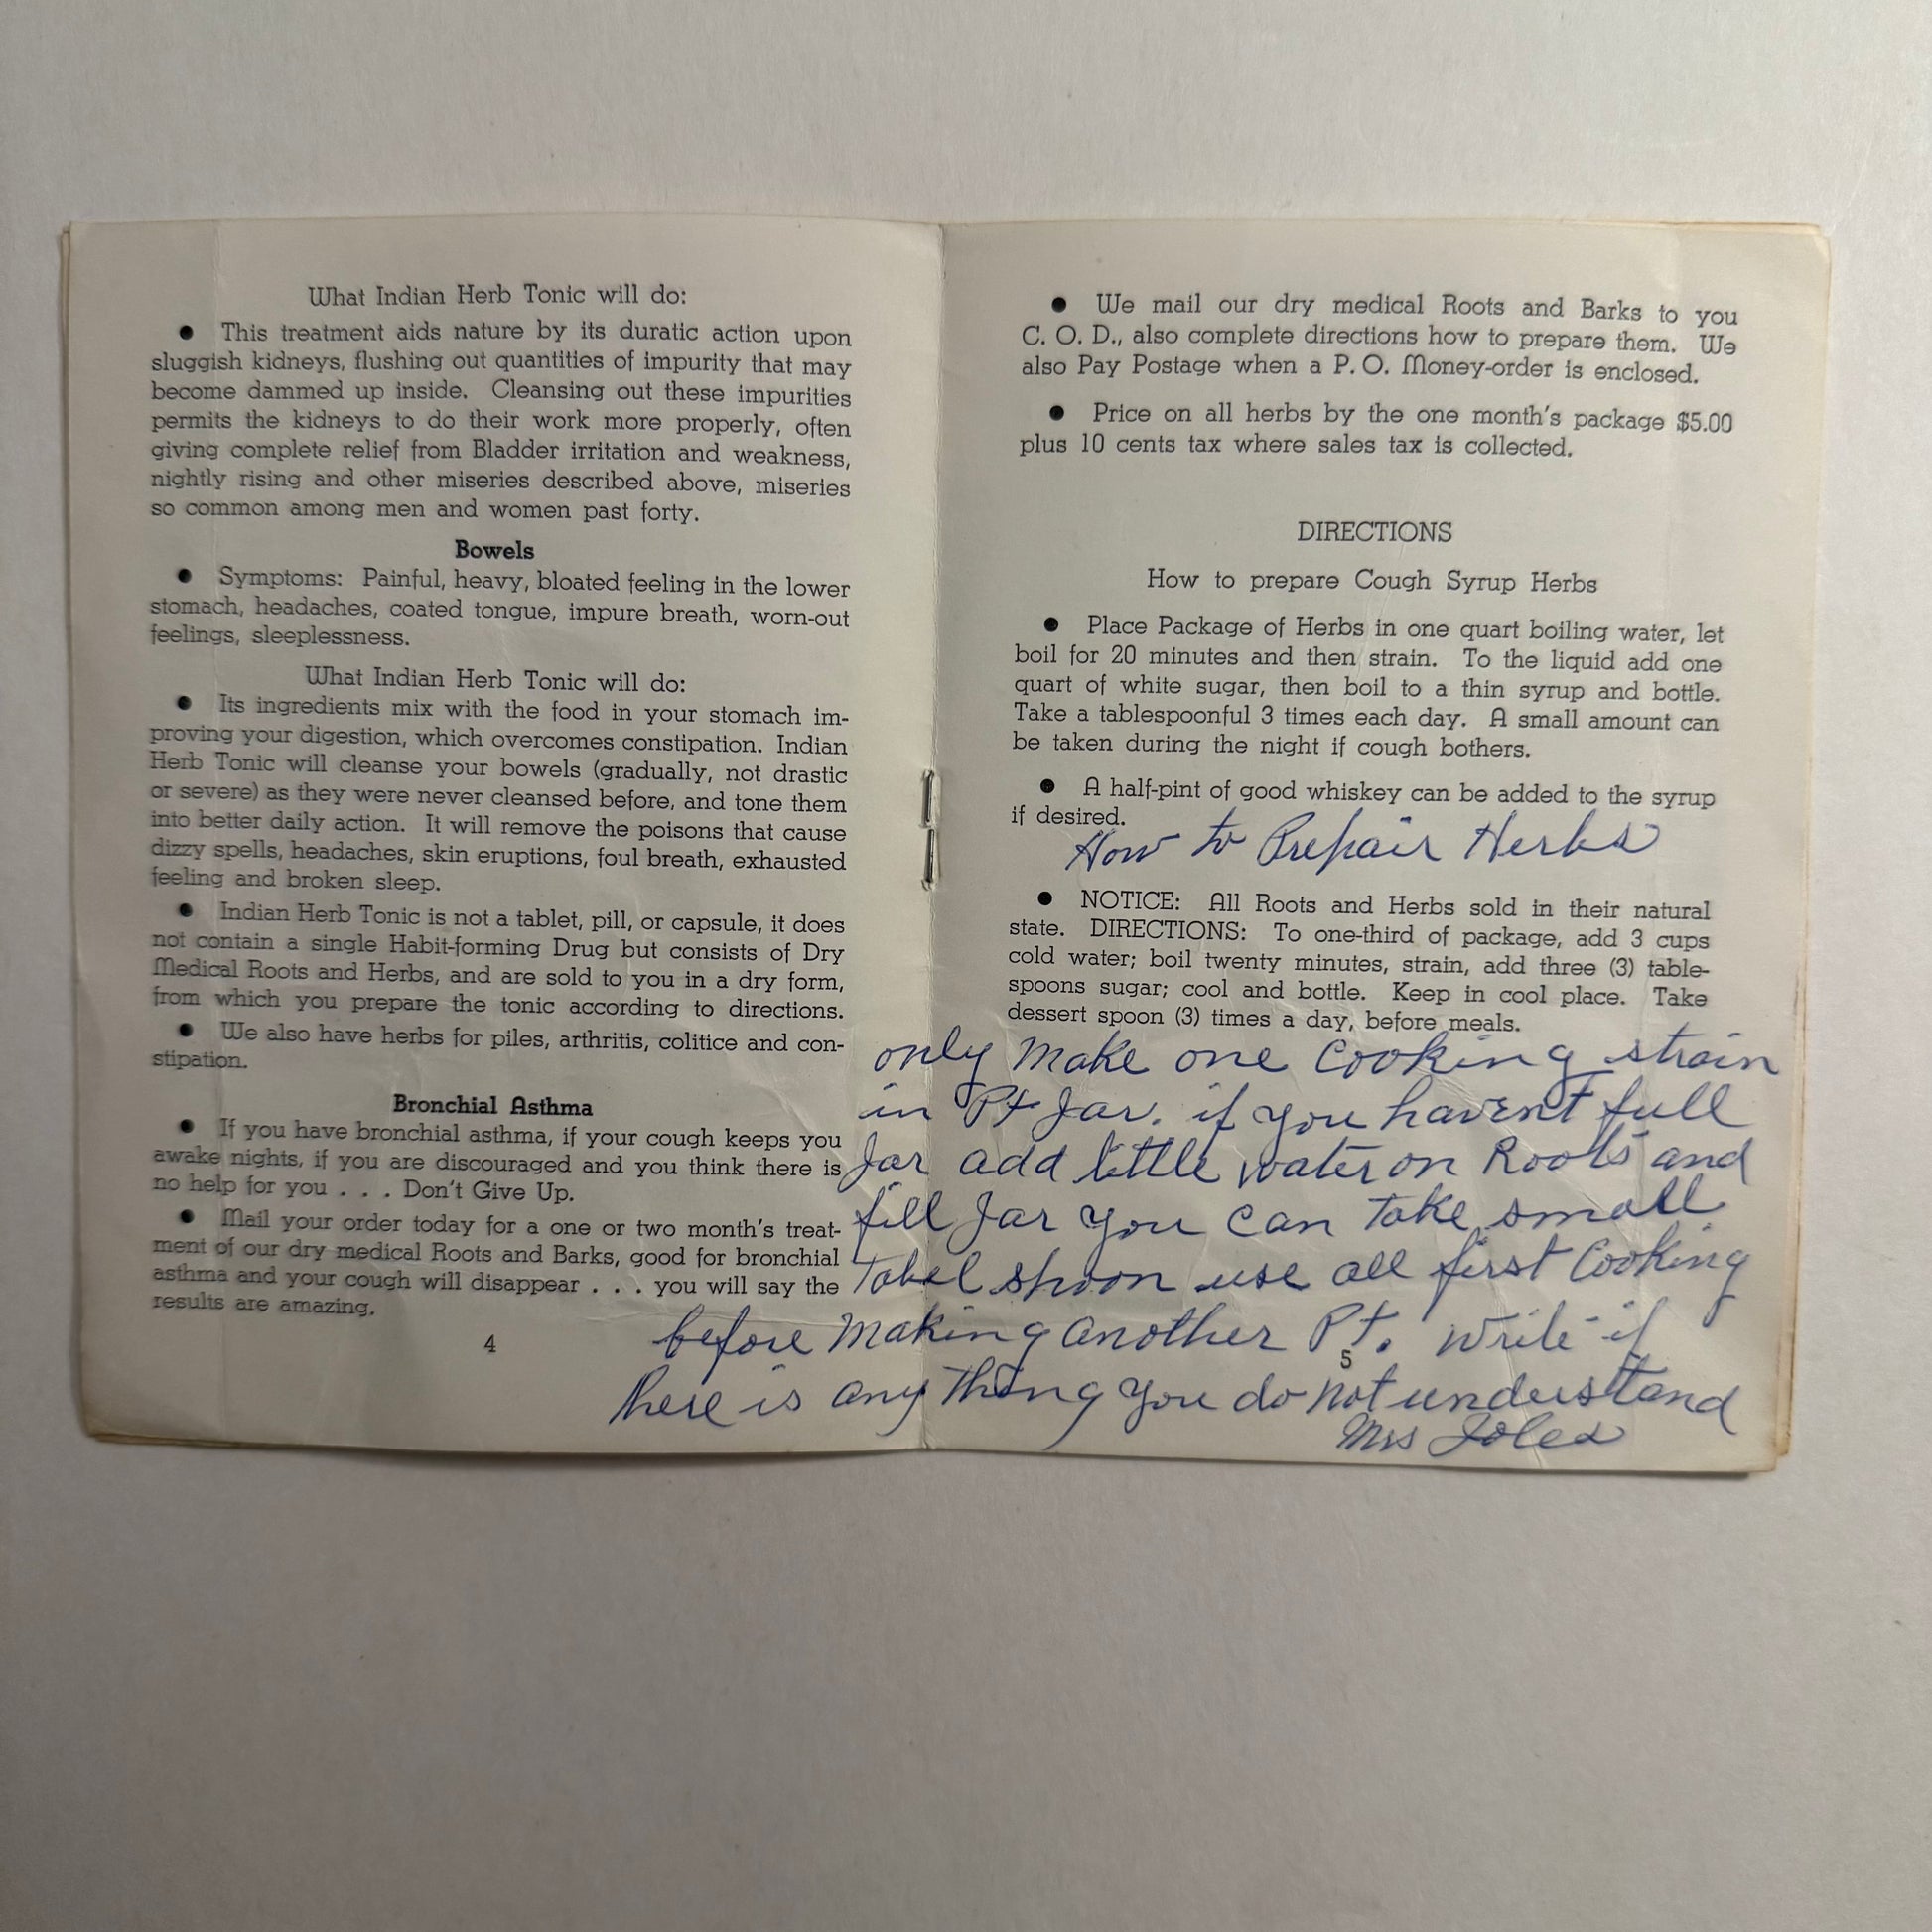 What Indian Herb Tonic will do:
● This treatment aids nature by its duratic action upon
sluggish kidneys, flushing out quantities of impurity that may
become dammed up inside. Cleansing out these impurities
permits the kidneys to do their work more properly, often
giving complete relief from Bladder irritation and weakness,
nightly rising and other miseries described above, miseries
so common among men and women past forty.
Bowels
● Symptoms: Painful, heavy, bloated feeling in the lower
stomach, headaches, coated tongue, impure breath, worn-out
feelings, sleeplessness.
What Indian Herb Tonic will do:
● Its ingredients mix with the food in your stomach im-
proving your digestion, which overcomes constipation. Indian
Herb Tonic will cleanse your bowels (gradually, not drastic
or severe) as they were never cleansed before, and tone them
into better daily action. It will remove the poisons that cause
dizzy spells, headaches, skin eruptions, foul breath, exhausted
feeling and broken sleep.
● Indian Herb Tonic is not a tablet, pill, or capsule, it does
not contain a single Habit-forming Drug but consists of Dry
Medical Roots and Herbs, and are sold to you in a dry form,
from which you prepare the tonic according to directions.
● We also have herbs for piles, arthritis, colitice and con-
stipation.
Bronchial Asthma
● If you have bronchial asthma, if your cough keeps you
awake nights, if you are discouraged and you think there is
no help for you . . . Don't Give Up.
● Mail your order today for a one or two month's treat-
ment of our dry medical Roots and Barks, good for bronchial
asthma and your cough will disappear . . . you will say the
results are amazing.
4
● We mail our dry medical Roots and Barks to you
C. O. D., also complete directions how to prepare them. We
also Pay Postage when a P. O. Money-order is enclosed.
● Price on all herbs by the one month's package $5.00
plus 10 cents tax where sales tax is collected.
DIRECTIONS
How to prepare Cough Syrup Herbs
● Place Package of Herbs in one quart boiling water, let
boil for 20 minutes and then strain. To the liquid add one
quart of white sugar, then boil to a thin syrup and bottle.
Take a tablespoonful 3 times each day. A small amount can
be taken during the night if cough bothers.
● A half-pint of good whiskey can be added to the syrup
if desired.
How to Prepair Herbs
● NOTICE: All Roots and Herbs sold in their natural
state. DIRECTIONS: To one-third of package, add 3 cups
cold water; boil twenty minutes, strain, add three (3) table-
spoons sugar; cool and bottle. Keep in cool place. Take
dessert spoon (3) times a day, before meals.
only make one cooking strain
in Pt Jar. if you havent full
Jar add little water on Roots and
fill Jar you can take small
tabel spoon use all first Cooking
before making another Pt. write if
there is any thing you do not understand
Mrs Joles
5